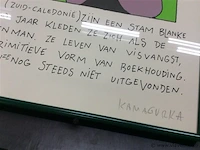 (ZUID-CALEDONIË) ZIJN EEN STAM BLANKE
JAAR KLEDEN ZE ZICH ALS DE
NMAN. ZE LEVEN VAN VISVANGST,
RIMITIEVE VORM VAN BOEKHOUDING.
NOG STEEDS NIET UITGEVONDEN.
KAMAGURKA